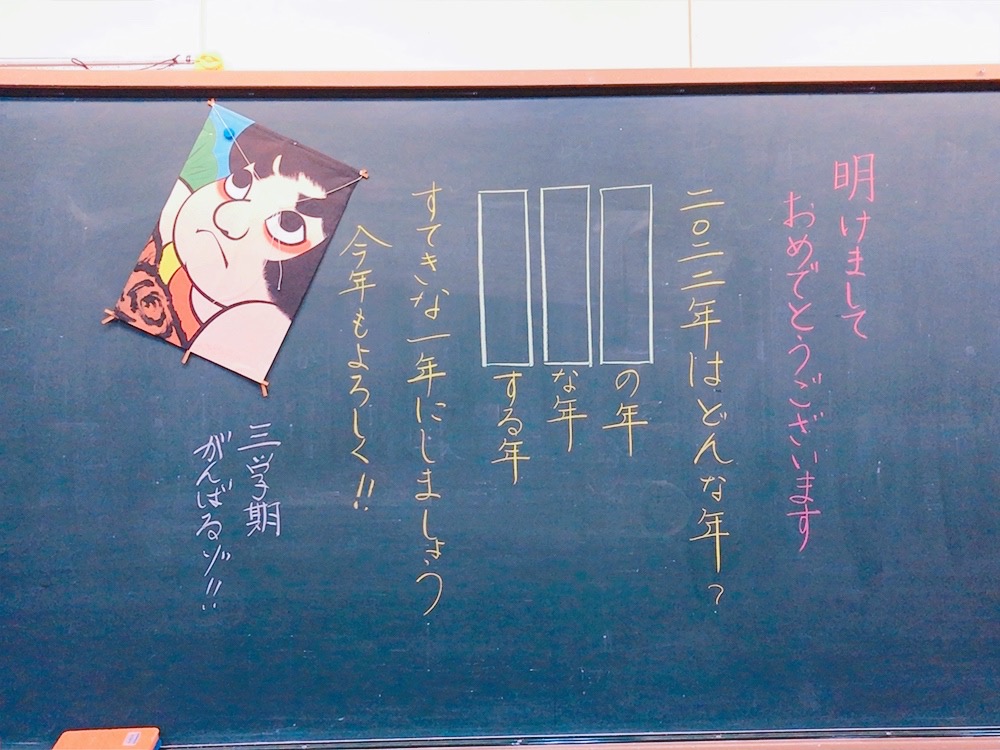 明けまして
おめでとうございます
二〇二二年はどんな年?
の年
な年
する年
すてきな一年にしましょう
今年もよろしく!!
三学期
がんばるゾ!!